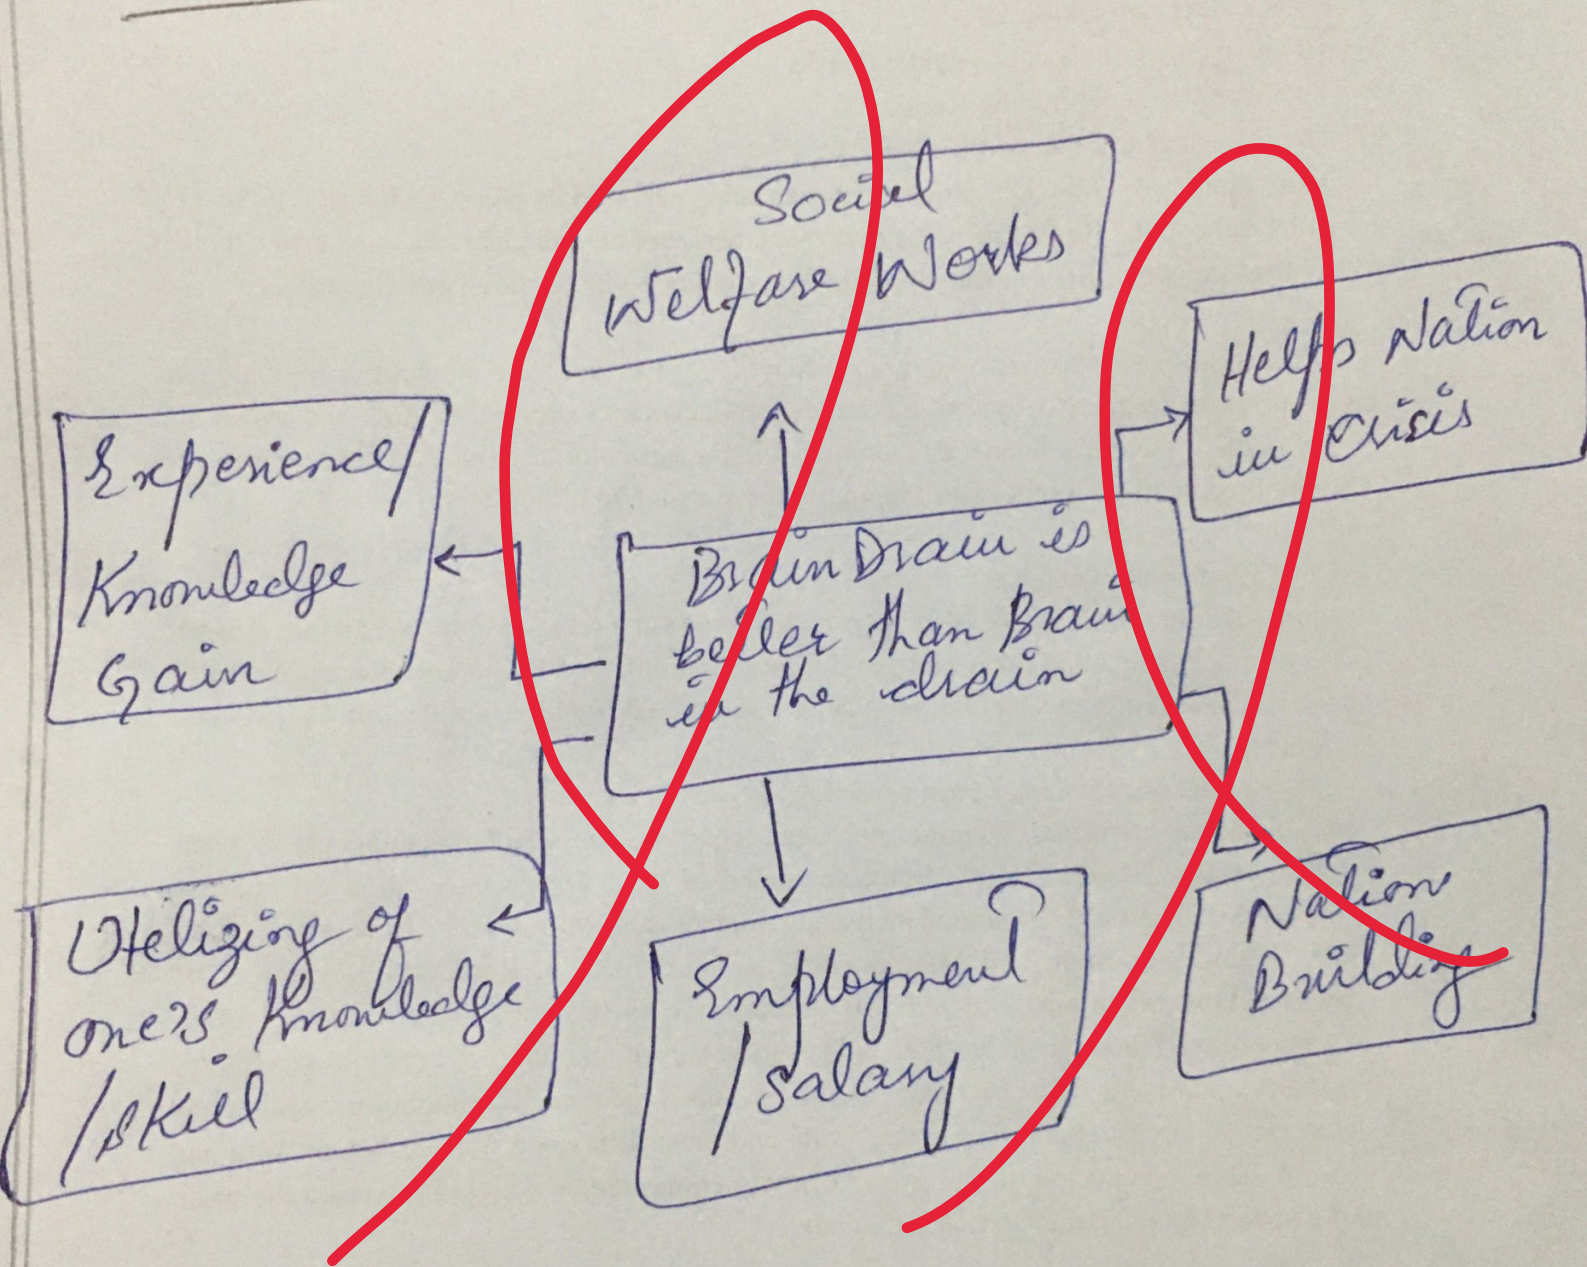 Social
Welfare Works
Helps Nation
in Crisis
Experience/
Knowledge
Gain
Brain Drain is
better than Brain
in the drain
Utelizing of
one's Knowledge
/skill
Employment
/salary
Nation
Building